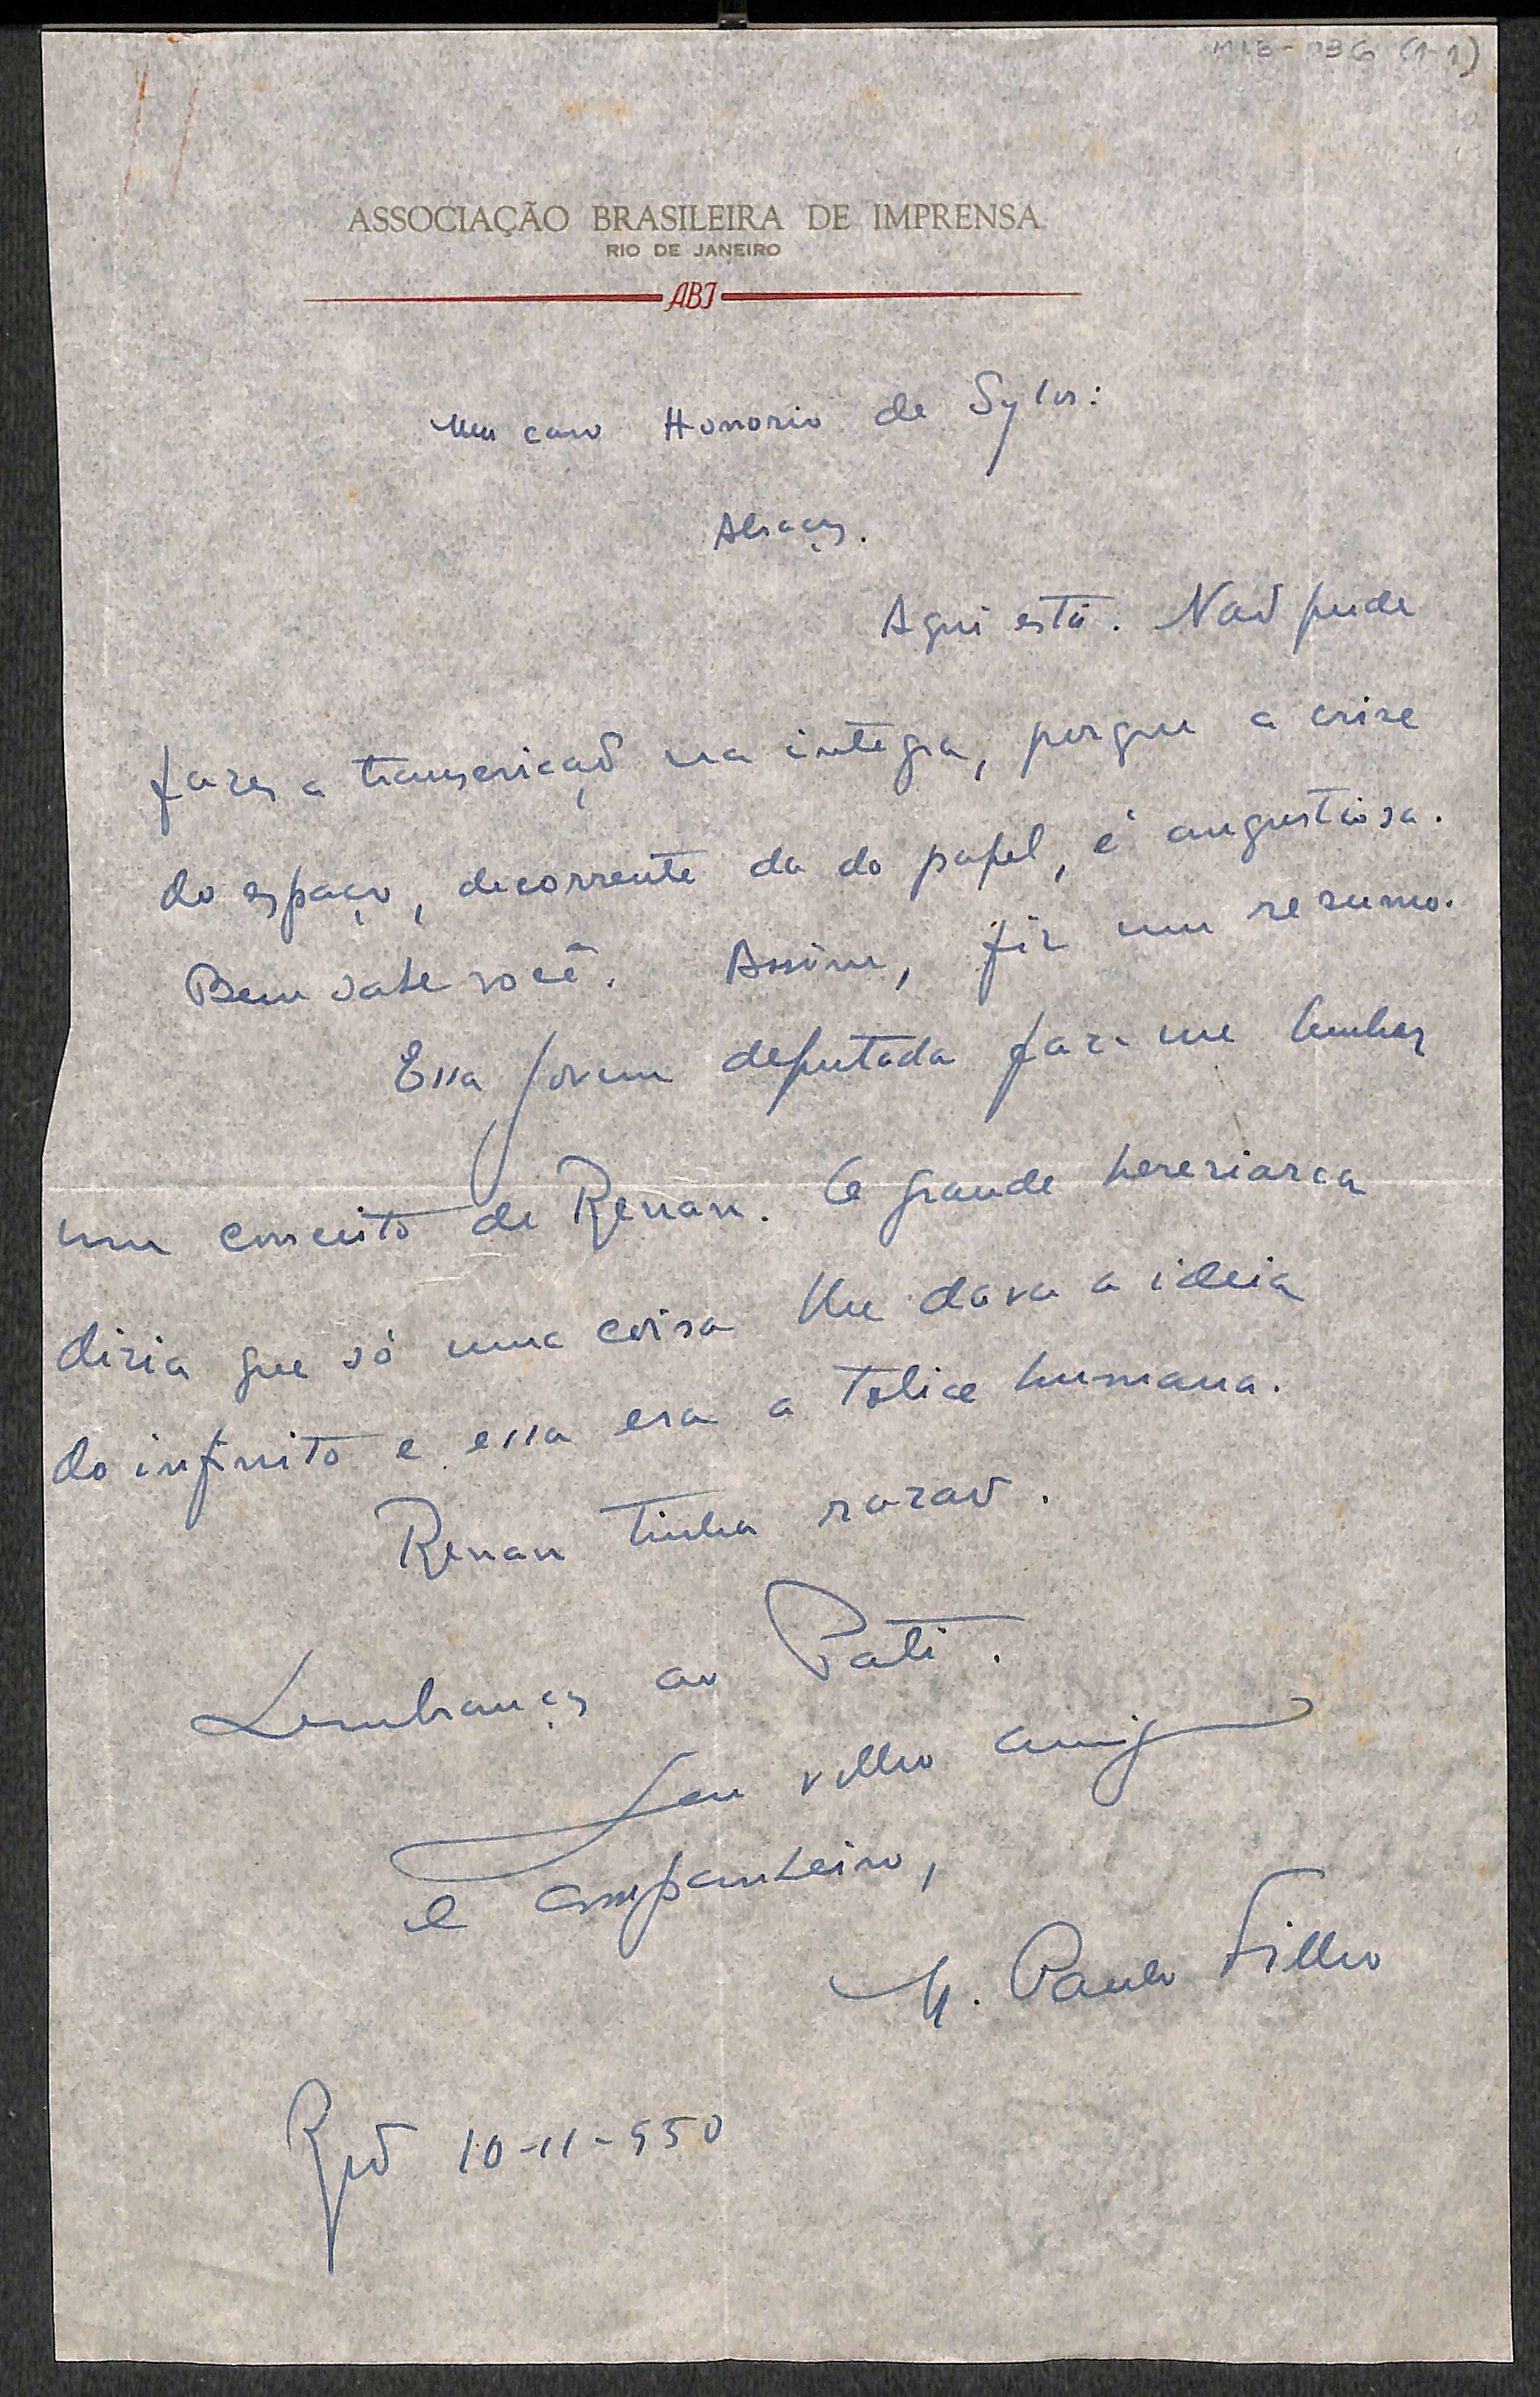 (1-1)
ASSOCIAÇÃO BRASILEIRA DE IMPRENSA
RIO DE JANEIRO
ABI
Meu caro Honorio de Sylos:
Abraços.
Aqui está. Naõ pude
fazer a transcriçaõ na integra, porque a crise
do espaço, decorrente da do papel, é angustiosa.
Bem sabe você. Assim, fiz um resumo.
Essa jovem deputada faz-me lembrar
um conceito de Renan. O grande heresiarca
dizia que só uma coisa lhe dava a ideia
do infinito e essa era a tolice humana.
Renan tinha razaõ.
Lembranças ao Pati.
Seu velho amigo
e companheiro,
M. Paulo Filho
Rio 10-11-950